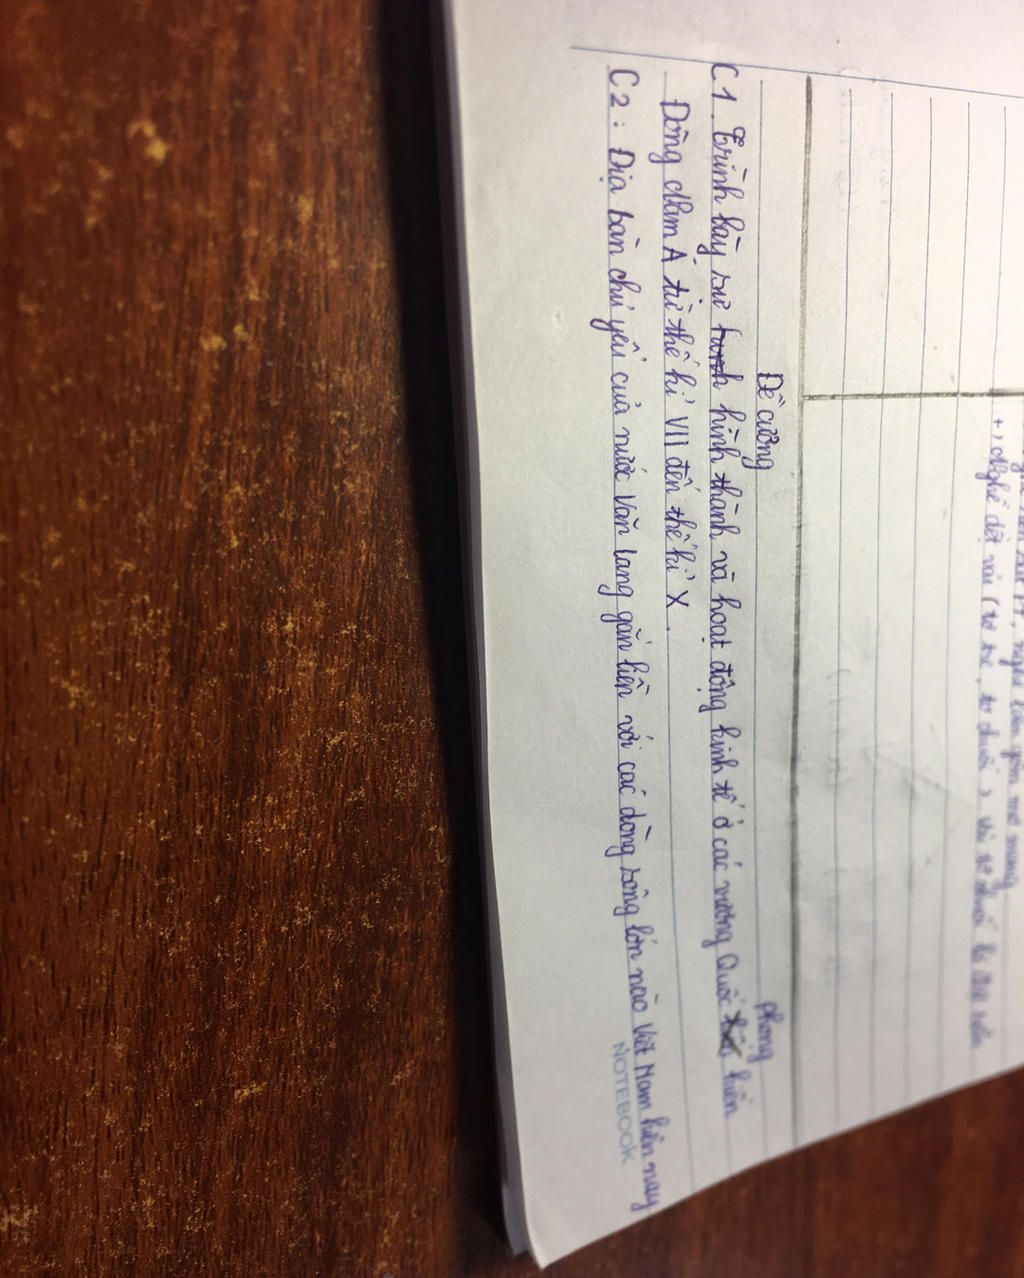 +) Nghề dệt vải (tơ tre, tơ chuối) vải tơ chuối là đặc sản
Đề cương
C1. Trình bày sự hình thành và hoạt động kinh tế ở các vương Quốc phong kiến
Đông Nam Á từ thế kỉ VII đến thế kỉ X.
C2: Địa bàn chủ yếu của nước Văn Lang gắn liền với các dòng sông lớn nào Việt Nam hiện nay
NOTEBOOK